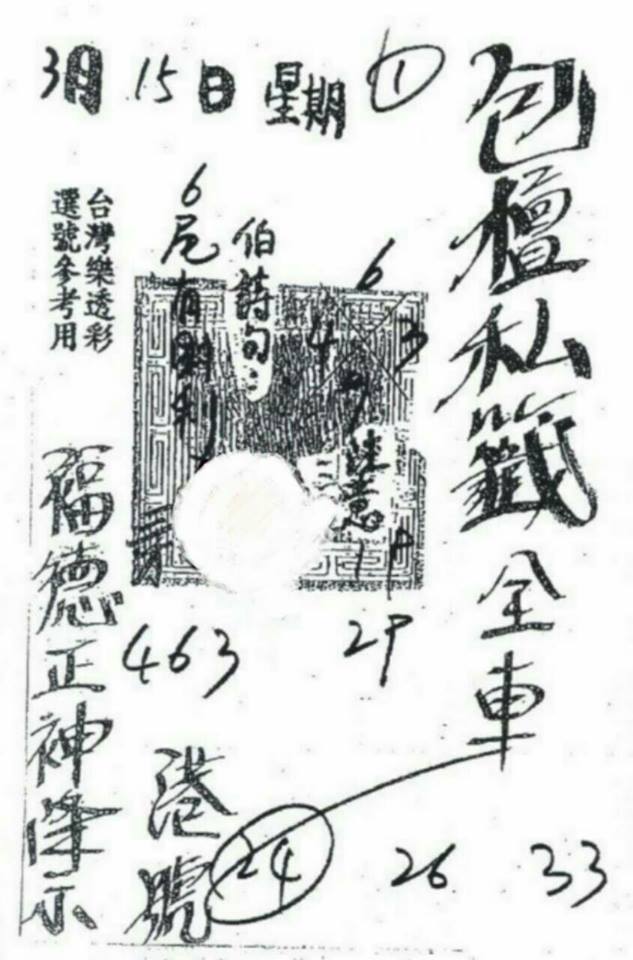 3月15日 星期①
包檀私籤全車
台灣樂透彩
選號參考用
伯詩句:
6尾有 利
6
4 3
9
注意
463
29
福德正神降示
港號
24 26 33